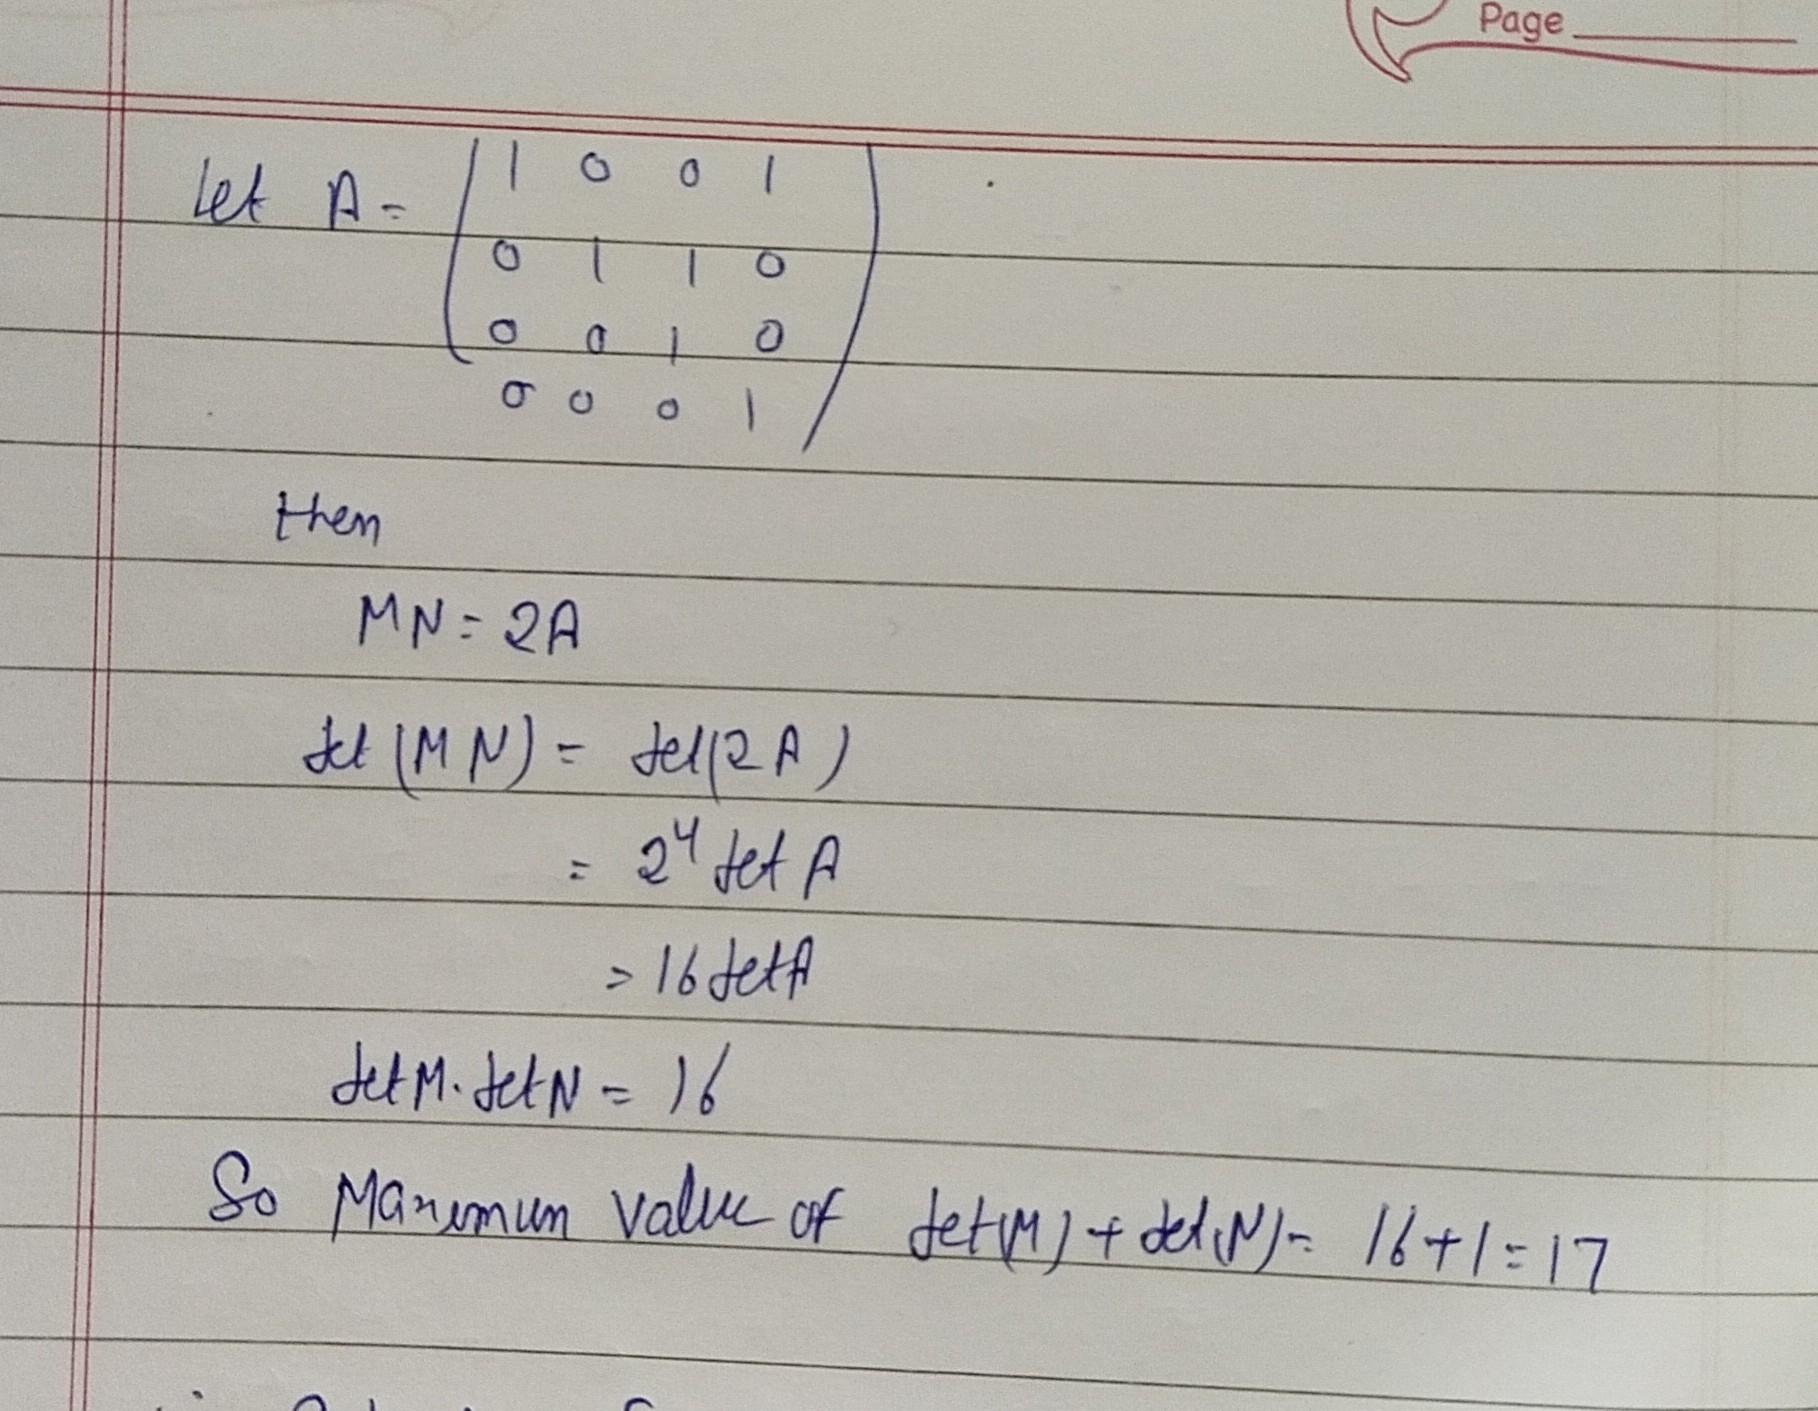 Page
Let A = ( 1 0 0 1
0 1 1 0
0 0 1 0
0 0 0 1 )
then
MN = 2A
det (MN) = det(2A)
= 2⁴ det A
= 16 det A
det M. det N = 16
So Maximum value of det(M) + det(N) = 16+1 = 17